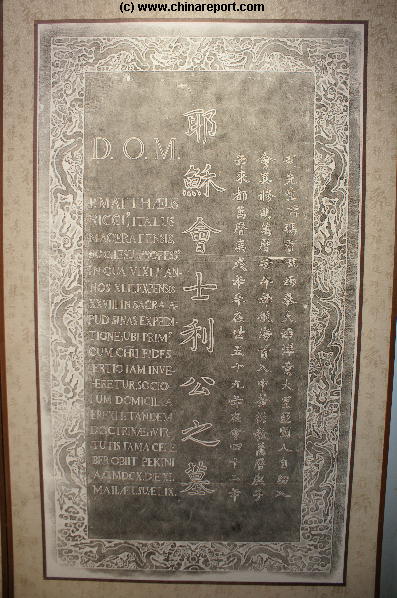 D. O. M.
P. MATTHÆUS
RICCI, ITALUS
MACERATENSIS,
SOC. IESU PROFESS
IN QUA VIXIT AN-
NOS XLII. EXPENSIS
XXVIII. IN SACRA A-
PUD SINAS EXPEDI-
TIONE; UBI PRIM9
CUM CHRI FIDES
TERTIO IAM INVE-
HERETUR, SOCIO-
RUM DOMICILIA
EREXIT. TANDEM
DOCTRINÆ & VIR-
TUTIS FAMA CELE
BER OBIIT PEKINI
A.C. MDCX. DIE XI.
MAII. ÆT. SUÆ LIX.
耶穌會士利公之墓
利先生諱瑪竇號西泰大西洋意大里亞國人自幼入
會真修明萬曆壬午年航海首入中華衍教萬曆庚子
年來都萬曆庚戌年卒在世五十九年在會四十二年
(c) www.chinareport.com